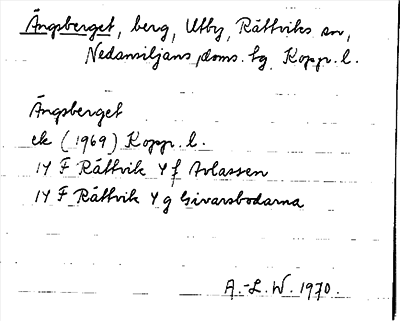 Ängsberget, berg, Utby, Rättviks sn,
Nedansiljans doms. tg Kopp. l.
Ängsberget
ek (1969) Kopp. l.
14 F Rättvik 4 f Arlassen
14 F Rättvik 4 g Givarsbodarna
A.-L. W. 1970.